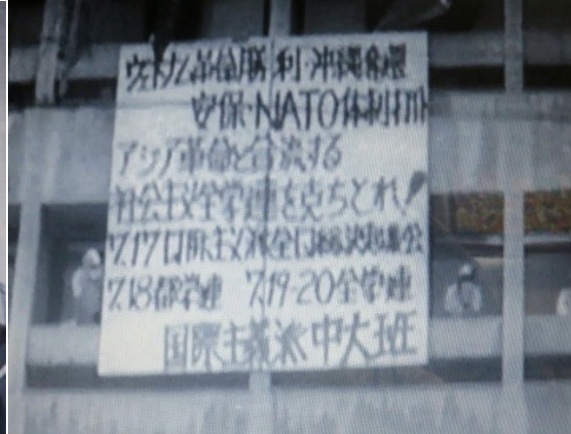 ヴェトナム革命勝利・沖縄奪還
安保・NATO体制打倒
アジア革命と合流する
社会主義全学連を克ちとれ!
7.17国際主義派全国総決起集会
7.18都学連 7.19-20全学連
国際主義派中大班